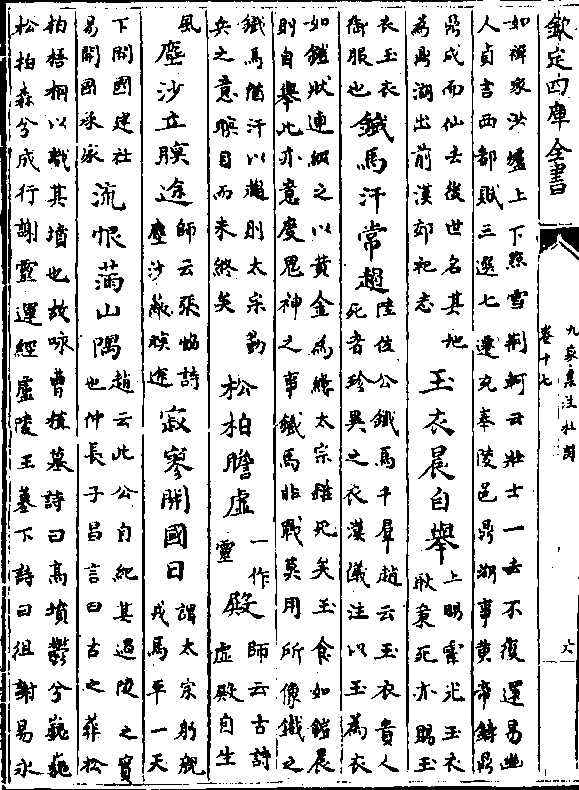 欽定四庫全書
九家集注杜詩
卷十七
六
如禪家洪爐上下點雪荆軻云壯士一去不復還易幽
人貞吉西都賦三選七遷充奉陵邑鼎湖事黄帝鑄鼎
鼎成而仙去後世名其地
為鼎湖出前漢郊祀志
玉衣晨自舉
上賜霍光玉衣
耿秉死亦賜玉
衣玉衣
御服也
鐵馬汗常趨
陸佐公鐵馬千羣趙云玉衣貴人
死者珍異之衣漢儀注以玉為衣
如鎧狀連綴之以黄金為縷太宗雖死矣玉食如鎧晨
則自舉此亦意度鬼神之事鐵馬非戰莫用所像鐵之
鐵馬猶汗以趨則太宗勤
兵之意瞑目而未終矣
松柏瞻虚
一作
靈
殿
師云古詩
虚殿自生
風
塵沙立暝途
師云張協詩
塵沙蔽暝途
寂寥開國日
謂太宗躬親
戎馬平一天
下開國建社
易開國承家
流恨滿山隅
趙云此公自紀其過陵之實
也仲長子昌言曰古之葬松
柏梧桐以識其墳也故咏曹植墓詩曰高墳鬱兮巍巍
松柏森兮成行謝靈運經廬陵王墓下詩曰徂謝易永